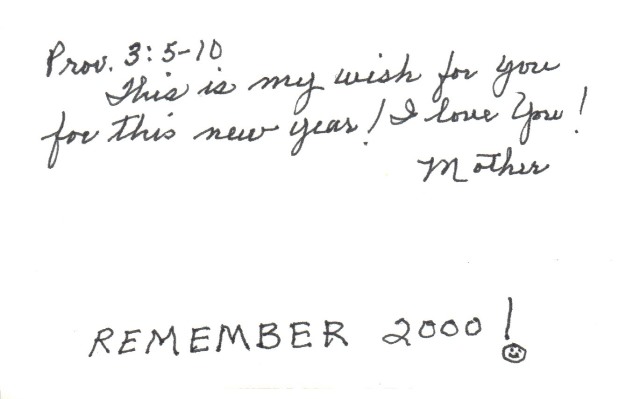 Prov. 3:5-10
This is my wish for you
for this new year! I love You!
Mother
REMEMBER 2000!